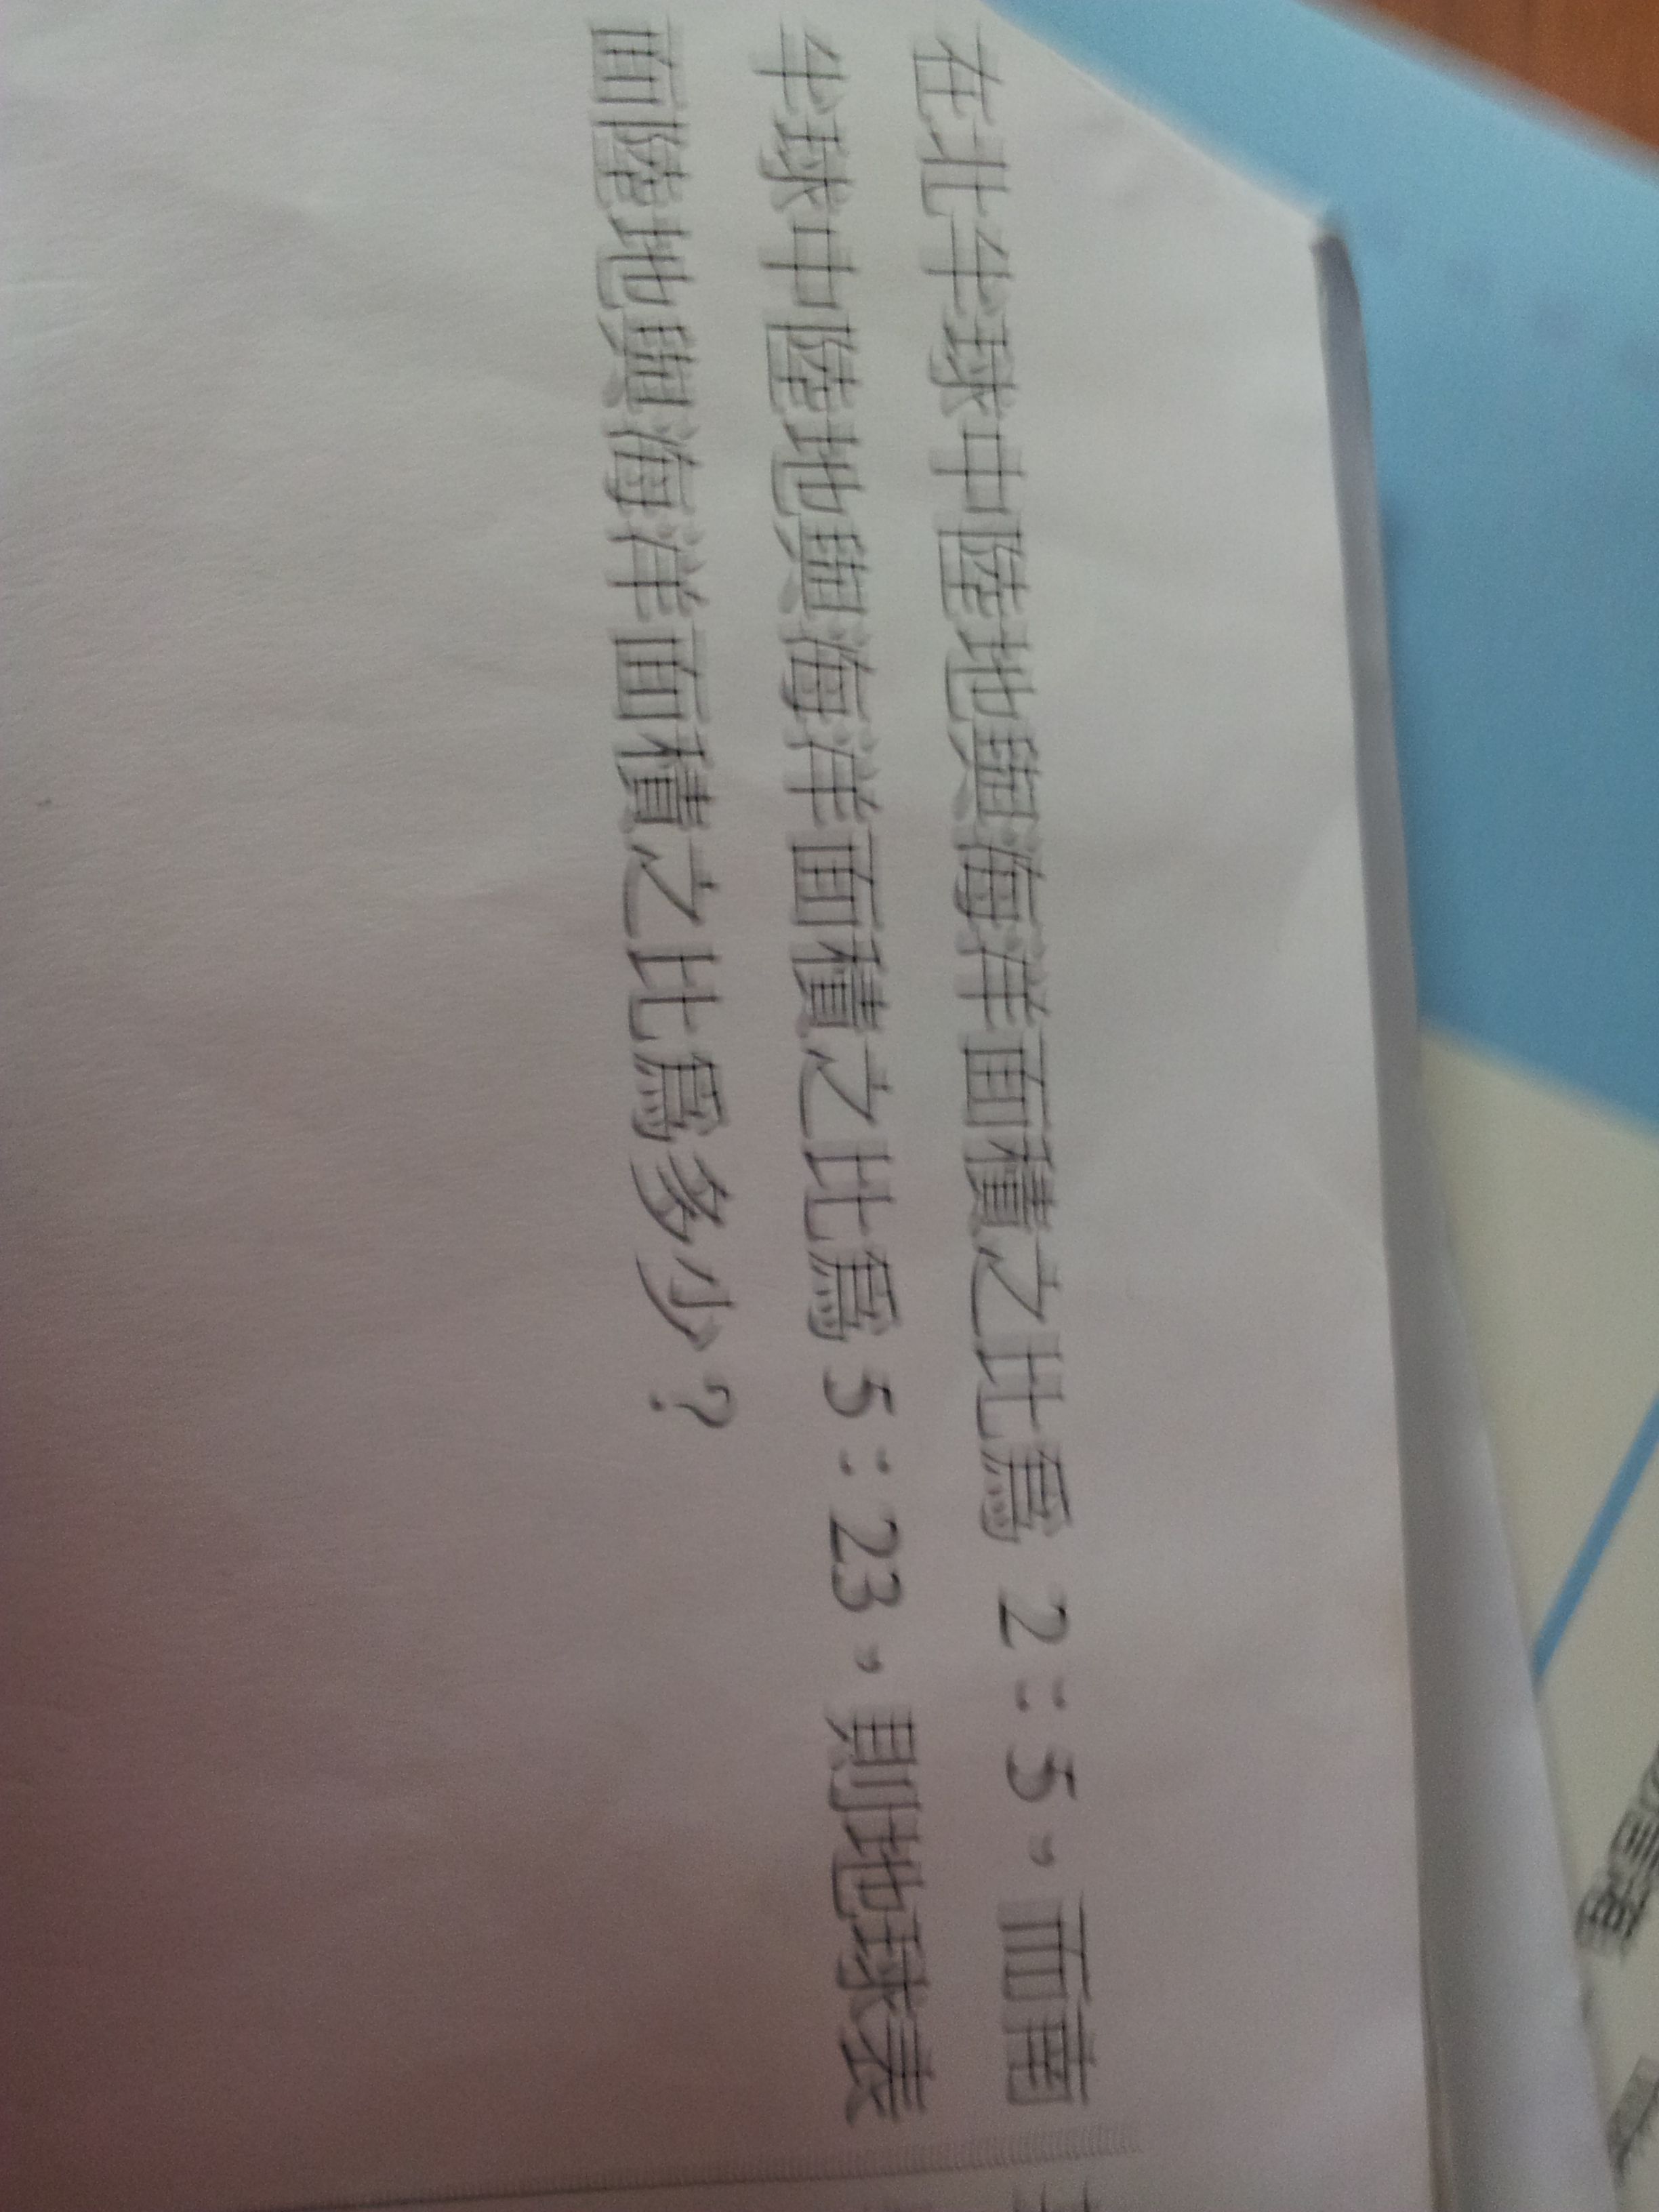 在北半球中陸地與海洋面積之比為 2：5，而南
半球中陸地與海洋面積之比為 5：23，則地球表
面陸地與海洋面積之比為多少？